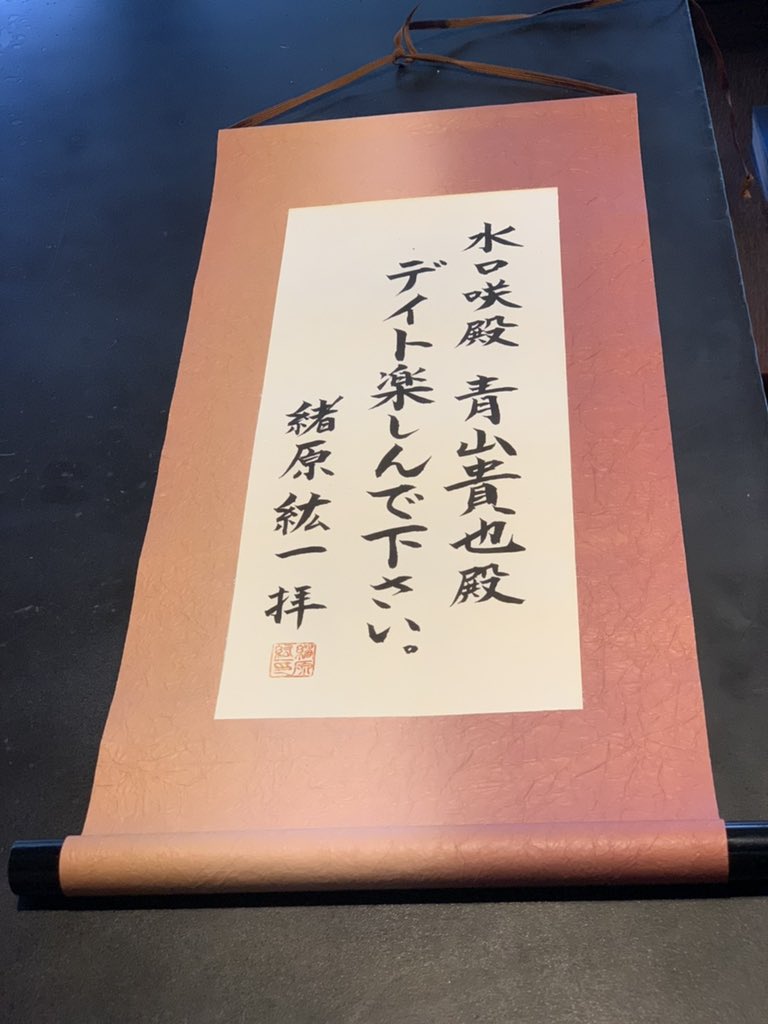 水口咲殿 青山貴也殿
デイト楽しんで下さい。
緒原紘一 拝